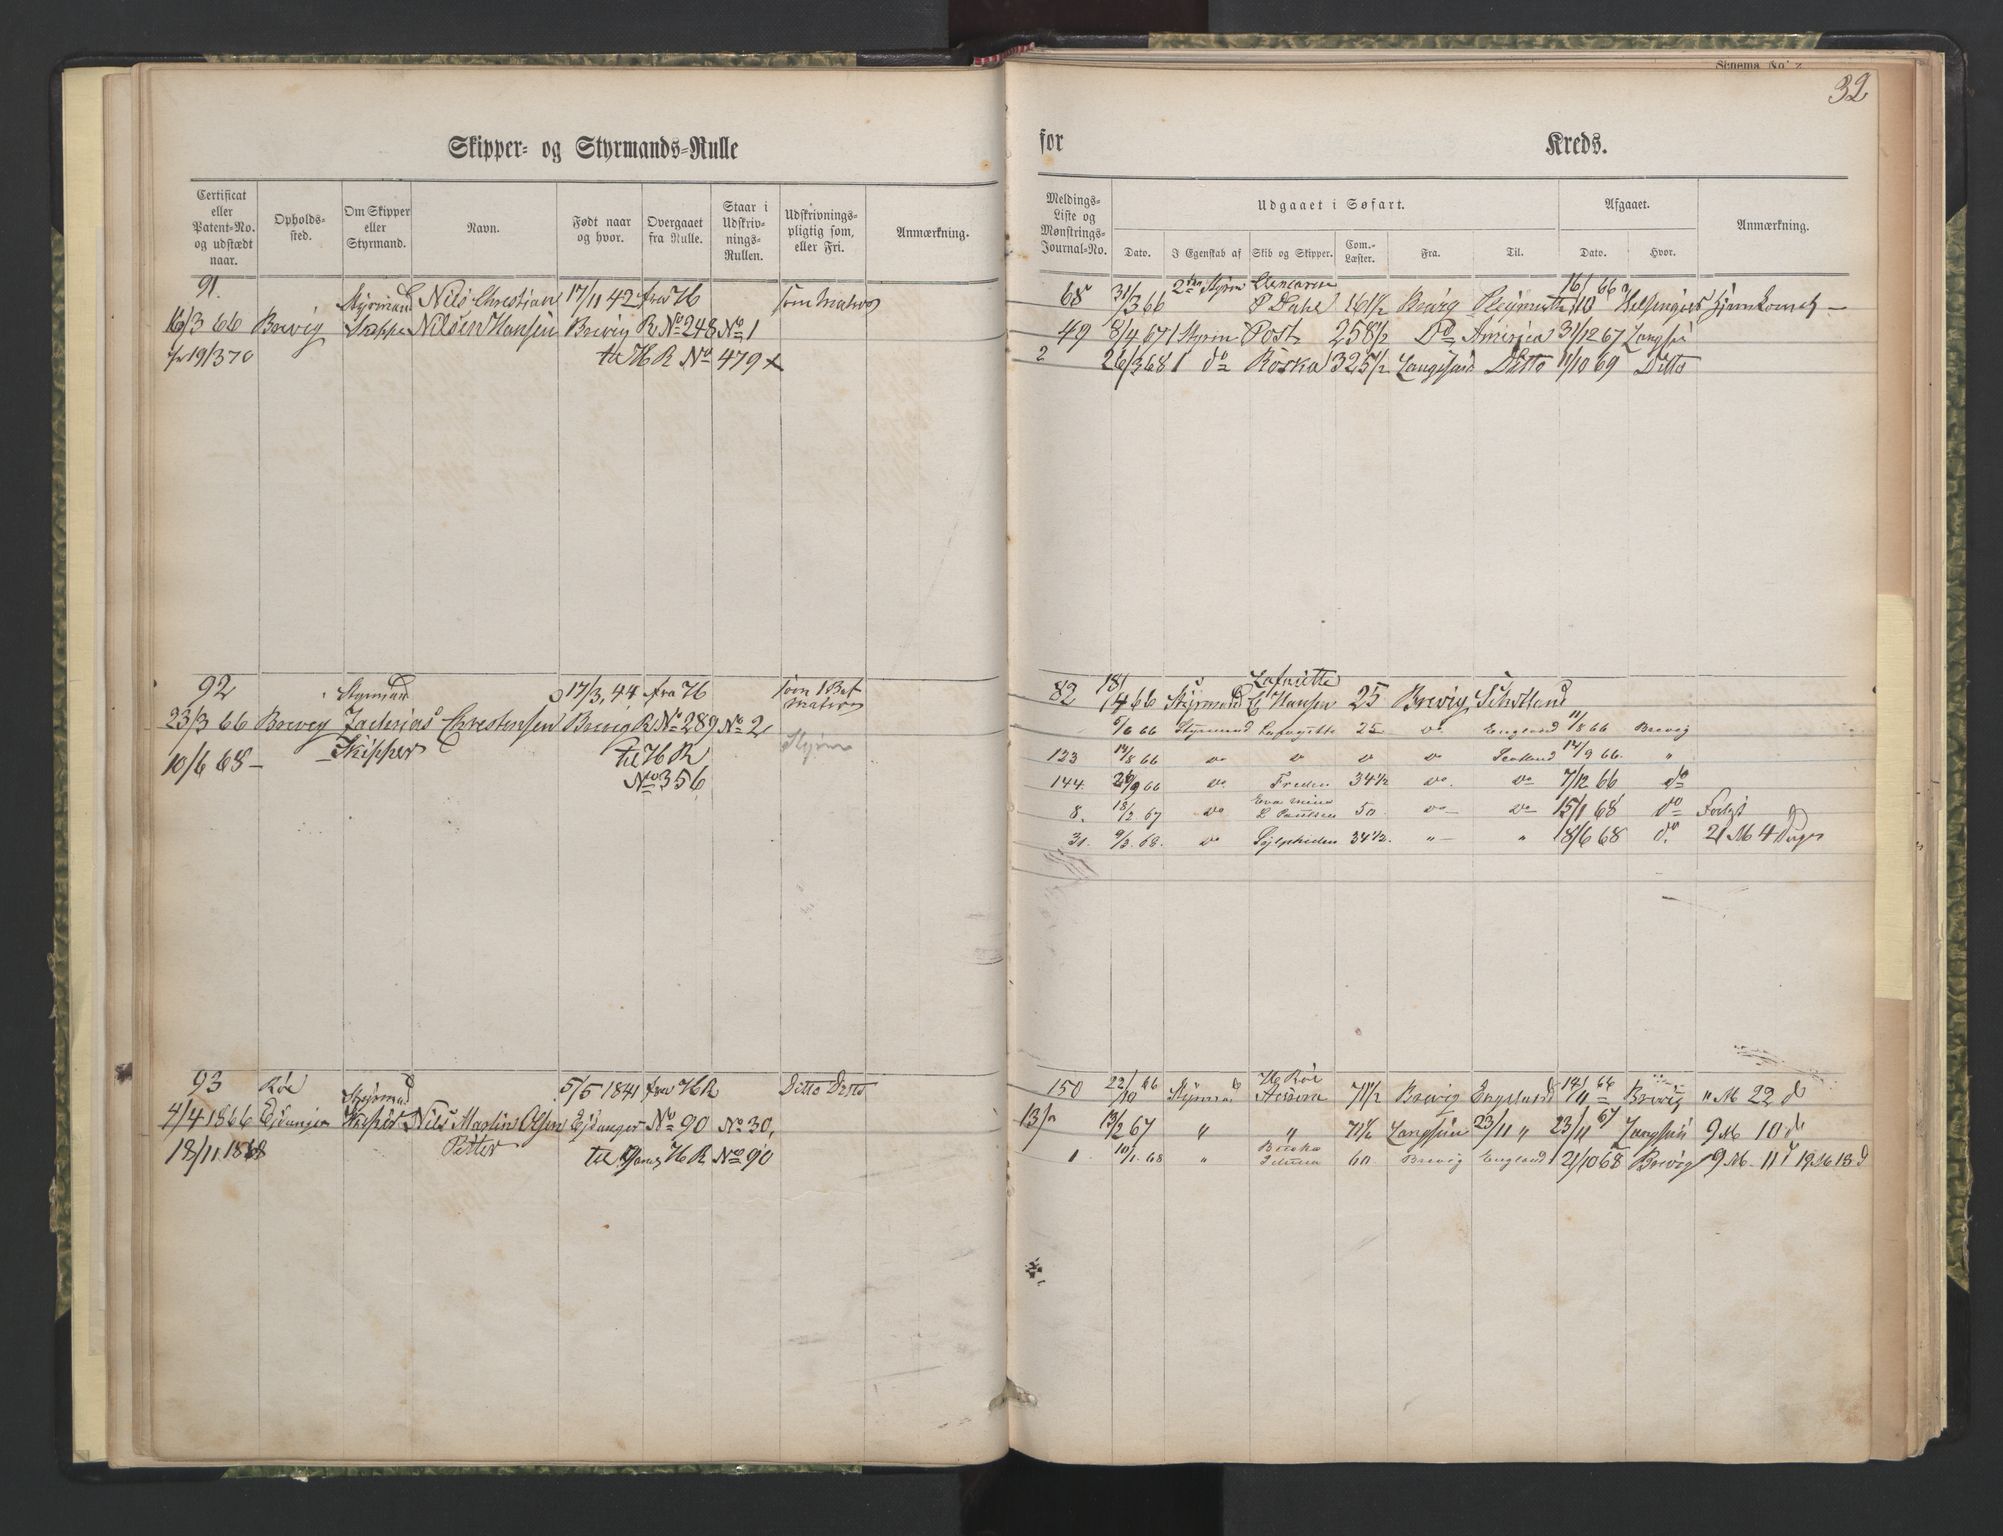 Schema No. 2
32
Skipper- og Styrmands-Rulle
for
Kreds.
Certificat eller Patent-No. og udstædt naar.
Opholds-sted.
Om Skipper eller Styrmand.
Navn.
Født naar og hvor.
Overgaaet fra Rulle.
Staar i Udskriv-nings-Rullen.
Udskrivnings-pligtig som, eller Fri.
Anmærkning.
Meldings-Liste og Mønstrings-Journal-No.
Udgaaet i Søfart.
Dato.
I Egenskab af
Skib og Skipper.
Com.-Læster.
Fra.
Til.
Afgaaet.
Dato.
Hvor.
Anmærkning.
91.
Styrmand Nils Christian 17/11 42 fra H som Matros
16/3 66 Brevig Nilsen Hansen Brevig R No 248 No 1
19/3 70 til H R No 479
68 31/3 66 2den Styrm P Dahl 161½ Brevig 16/10 66 Helsingør Hjemkomst
49 8/4 67 1 Styrm Post 258½ Do America 31/12 67 Langsú
2 26/3 68 1 do Roska 325½ Langesund Ditto 1/10 69 Ditto
92 Styrmand 17/3 44 fra H som 1 Bef Matros
23/3 66 Brevig Zacharias Christensen Brevig R No 289 No 2
Styrm
10/6 68 Skipper til H R
No 356
82 18/4 66 Styrmand Lafaiette C Hansen 25 Brevig Schotland
5/6 66 Styrmand Lafayette 25 do England 11/8 66 Brevig
123 14/8 66 do do do do Scotland 14/9 66 "
144 26/9 66 do Freden 34½ do do 7/12 66 do
8. 18/2 67 do Eva Mina L Paulsen 50 do do 15/1 68 do Forligt
31. 9/3 68. do Sylphiden 34½ " " 18/6 68 do 21 M 4 Dage
93 Röe Styrmand 5/5 1841 fra H R Ditto Ditto
4/4 1866 Eidanger Nils Martin Olsen Eidanger No 90 No 30,
18/11 1868 Petter til H R No 90
150 22/10 66 Styrmand H Röe 71½ Brevig England 14/11 66 Brevig " M 22 d
13 13/2 67 " " 71½ Langsun 23/11 " 23/11 67 Langsun 9 M 10 d
1 10/1 68 " 60 Brevig England 21/10 68 Brevig 9 M. 11 d 19 M 13 d